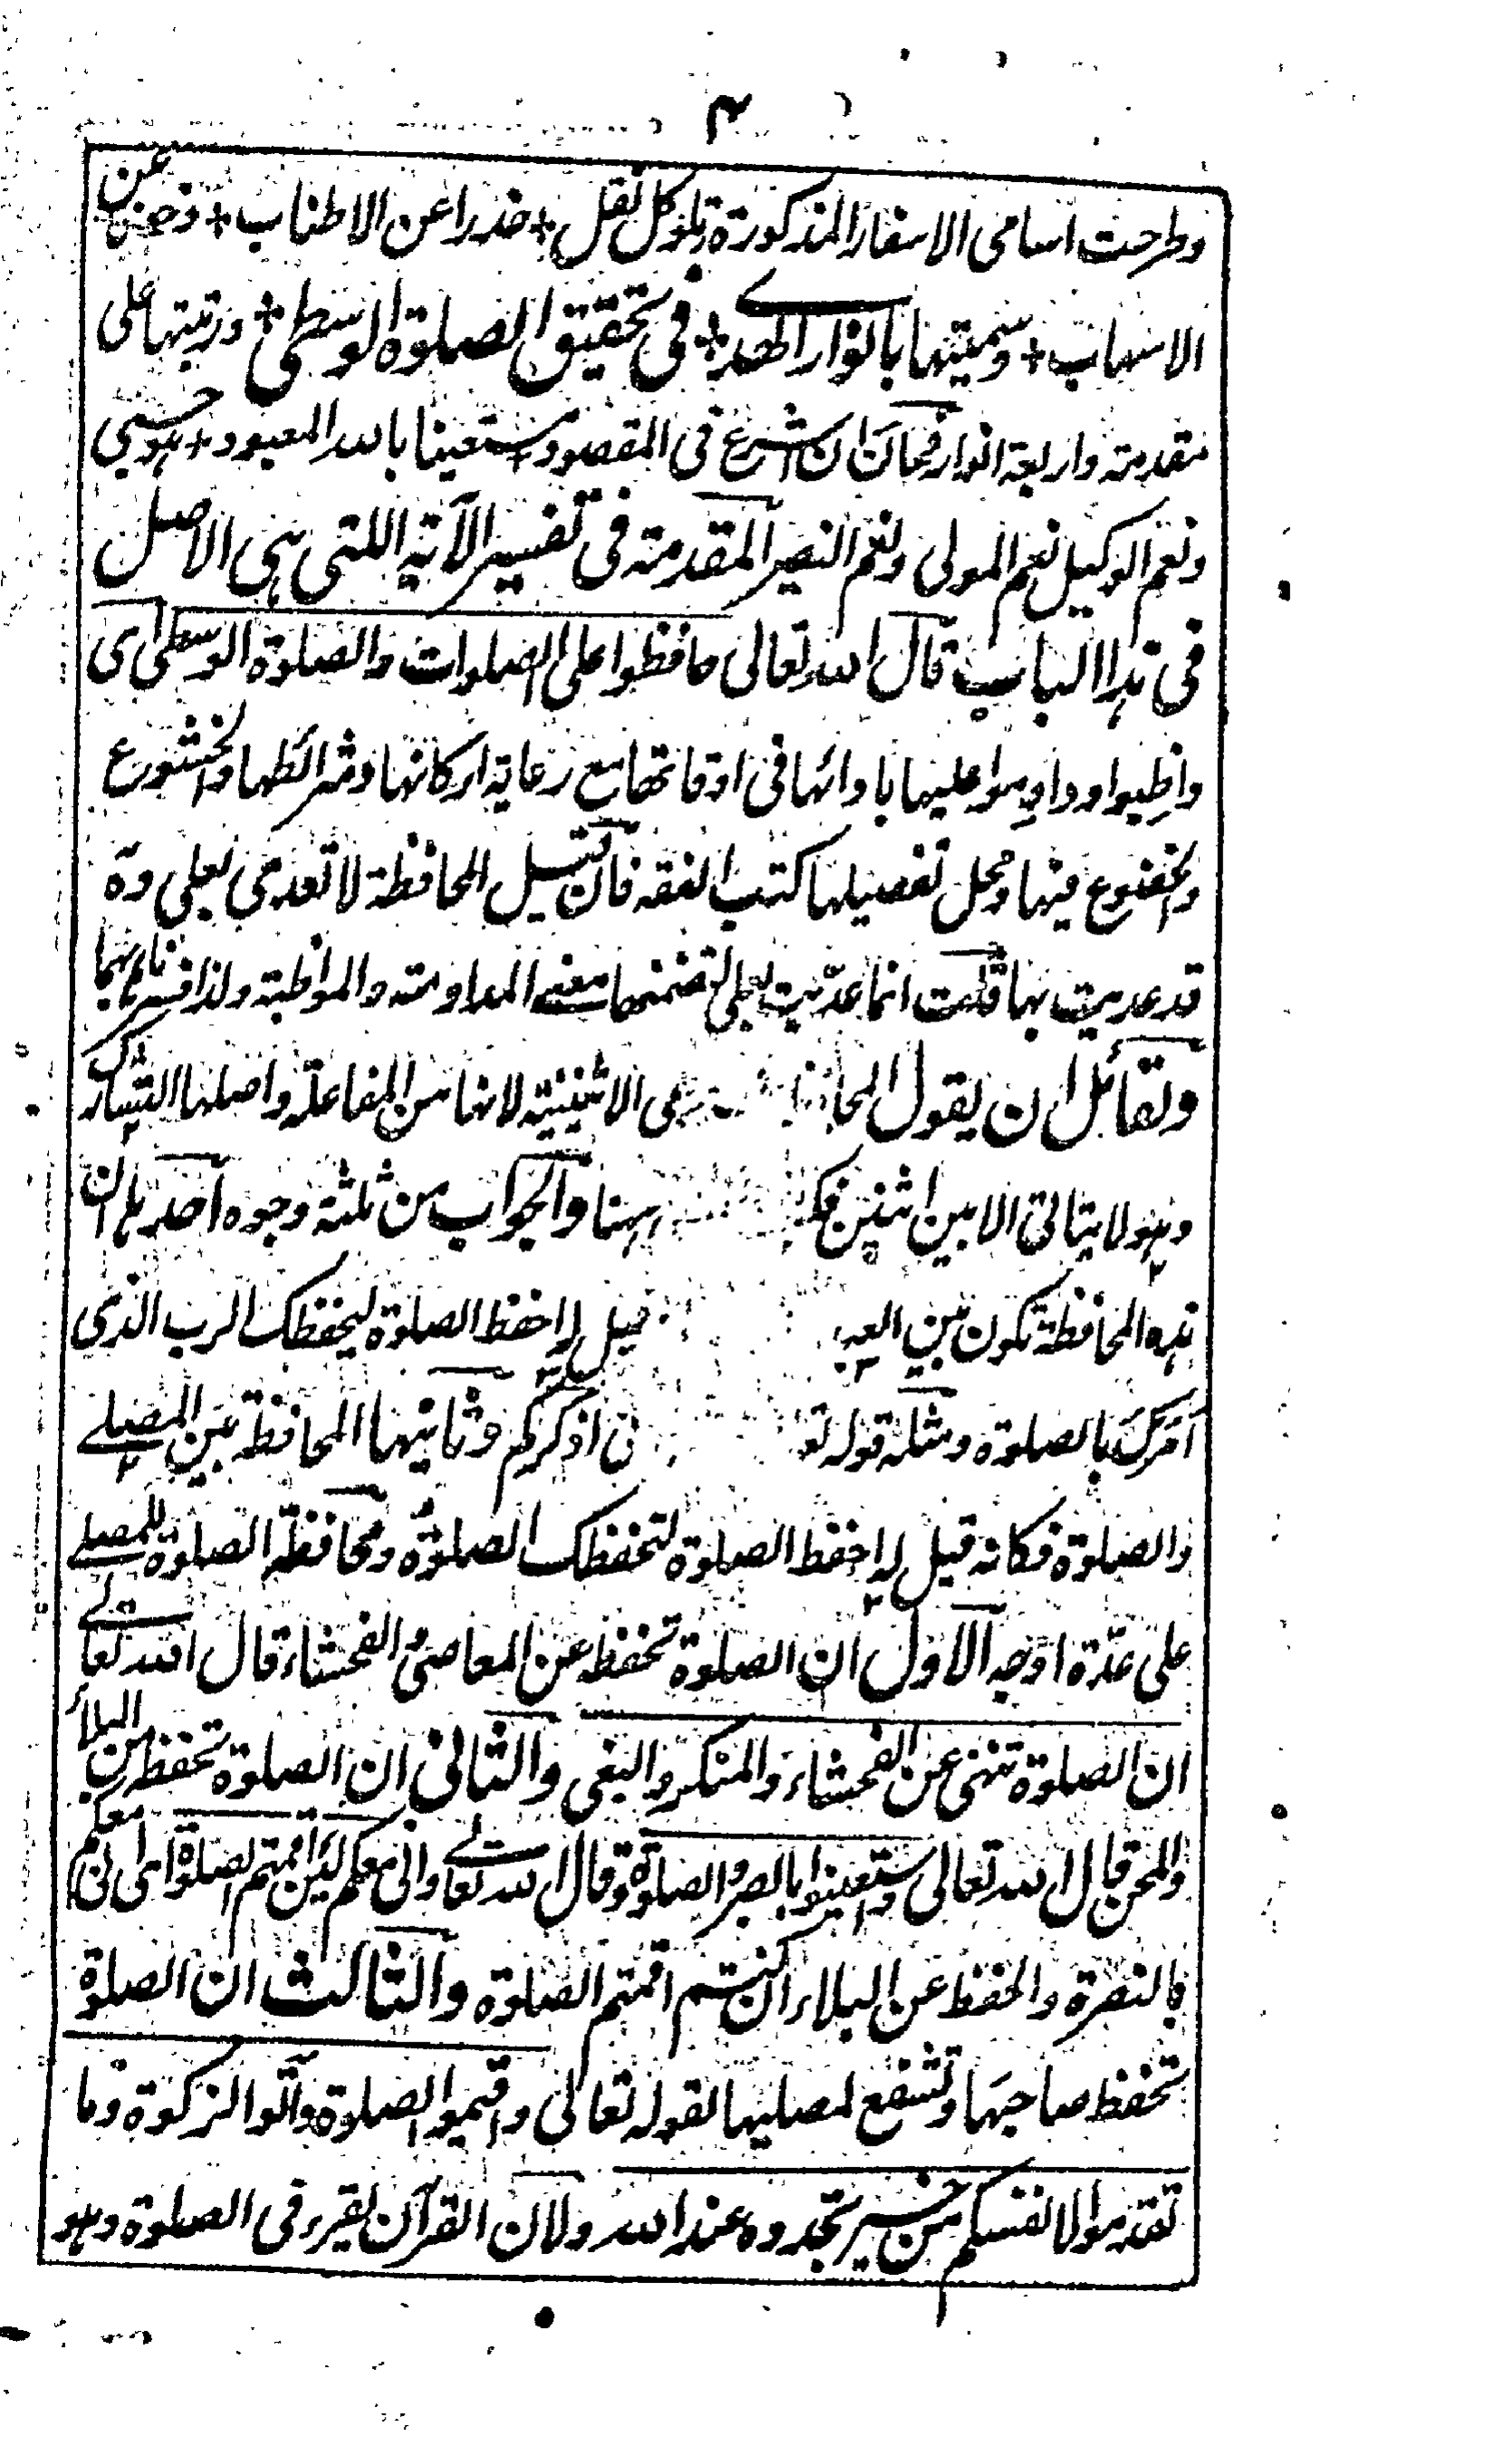 ٣
وطرحت اسامى الاسفار المذكورة تلو كل نقل + حذرا عن الاطناب + وضنة عن
الاسهاب + وسميتها بانوار الهدى + فى تحقيق الصلوة الوسطى + ورتبتها على
مقدمة واربعة انوار فحان ان اشرع فى المقصود مستعينا بالله المعبود + هو حسبى
ونعم الوكيل نعم المولى ونعم النصير المقدمة فى تفسير الآية اللتى هى الاصل
فى هذا الباب قال الله تعالى حافظوا على الصلوات والصلوة الوسطى اى
واظبوا وداوموا عليها بادائها فى اوقاتها مع رعاية اركانها وشرائطها والخشوع
والخضوع فيها ومحل تفصيلها كتب الفقه فان قيل المحافظة لا تعدى بعلى وه
قد عديت بها قلت انما عديت بعلى لتضمنها معنى المداومة والمواظبة ولذا فسرناها بهما
ولقائل ان يقول المحافظة الاثنينية لانها من المفاعلة واصلها التشارك
وهو لا يتاتى الا بين اثنين فكيف ههنا والجواب من ثلثة وجوه احدها ان
هذه المحافظة تكون بين العبد قيل له احفظ الصلوة ليحفظك الرب الذى
امرك بالصلوة ومثله قوله تع نى اذكركم وثانيها المحافظة بين المصلى
والصلوة فكانه قيل له احفظ الصلوة لتحفظك الصلوة ومحافظة الصلوة للمصلى
على عدة اوجه الاول ان الصلوة تحفظه عن المعاصى والفحشاء قال الله تعالى
ان الصلوة تنهى عن الفحشاء والمنكر والبغى والثانى ان الصلوة تحفظه من البلاء
والمحن قال الله تعالى واستعينوا بالصبر والصلوة وقال الله تعالى وانى معكم لئن اقمتم الصلوة اى انى معكم
بالنصرة والحفظ عن البلاء ان كنتم اقمتم الصلوة والثالث ان الصلوة
تحفظ صاحبها وتشفع لمصليها لقوله تعالى واقيموا الصلوة وآتوا الزكوة وما
تقدموا لانفسكم من خير تجدوه عند الله ولان القرآن يقرء فى الصلوة وهو